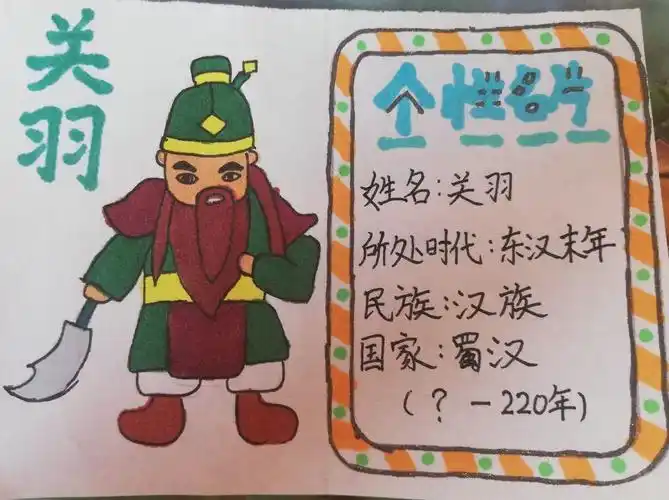 关羽
个性名片
姓名:关羽
所处时代:东汉末年
民族:汉族
国家:蜀汉
(?-220年)